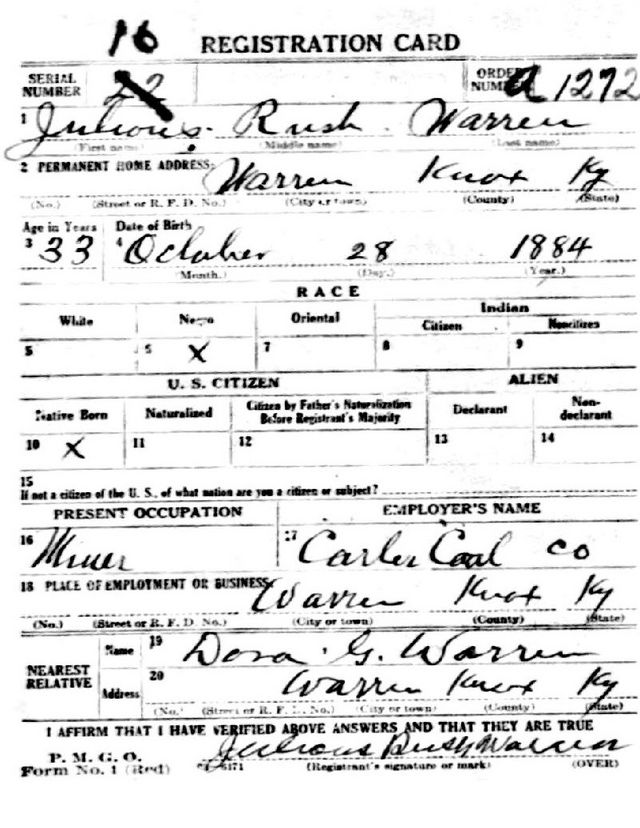 16
REGISTRATION CARD
SERIAL NUMBER 22 ORDER NUMBER A 1272
1 Julious. Rush. Warren
(First name) (Middle name) (Last name)
2 PERMANENT HOME ADDRESS: Warren Knox Ky
(No.) (Street or R. F. D. No.) (City or town) (County) (State)
Age in Years Date of Birth
3 33 4 October 28 1884
(Month.) (Day.) (Year.)
RACE
White Negro Oriental Indian
Citizen Noncitizen
5 6 X 7 8 9
U. S. CITIZEN ALIEN
Native Born Naturalized Citizen by Father's Naturalization Before Registrant's Majority Declarant Non-declarant
10 X 11 12 13 14
15
If not a citizen of the U. S., of what nation are you a citizen or subject?
PRESENT OCCUPATION EMPLOYER'S NAME
16 Miner 17 Carter Coal Co
18 PLACE OF EMPLOYMENT OR BUSINESS: Warren Knox Ky
(No.) (Street or R. F. D. No.) (City or town) (County) (State)
NEAREST RELATIVE Name 19 Dora G. Warren
Address 20 Warren Knox Ky
(No.) (Street or R. F. D. No.) (City or town) (County) (State)
I AFFIRM THAT I HAVE VERIFIED ABOVE ANSWERS AND THAT THEY ARE TRUE
P. M. G. O.
Form No. 1 (Red) Julious Rush Warren
(Registrant's signature or mark) (OVER)